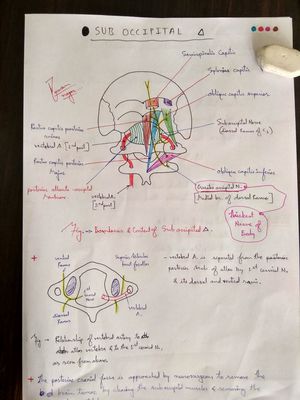 SUB OCCIPITAL Δ
Semispinalis Capitis
Splenius capitis
oblique capitis superior
Suboccipital Nerve
(dorsal Ramus of C1)
Rectus capitis posterior
minor
vertebral A. [3rd part]
Rectus capitis posterior
Major
posterior atlanto-occipital
Membrane
vertebral A.
[2nd part]
oblique capitis inferior
Greater occipital N.
[Medial br. of dorsal Ramus]
Thickest
Nerve of
Body
Fig → Boundaries & Content of Sub occipital Δ.
+ ventral
Ramus
Superior Articular
facet
1st
Cervical
Nerve
dorsal
Ramus
vertebral
A.
- vertebral A. is separated from the posterior
posterior arch of atlas by 1st cervical N.
& its dorsal and ventral rami.
Fig → Relationship of vertebral artery to
atlas vertebra & to the 1st cervical N.
as seen from above.
+ The posterior cranial fossa is approached by neurosurgeons to remove the
brain tumor, by cleaning the suboccipital muscles & removing the